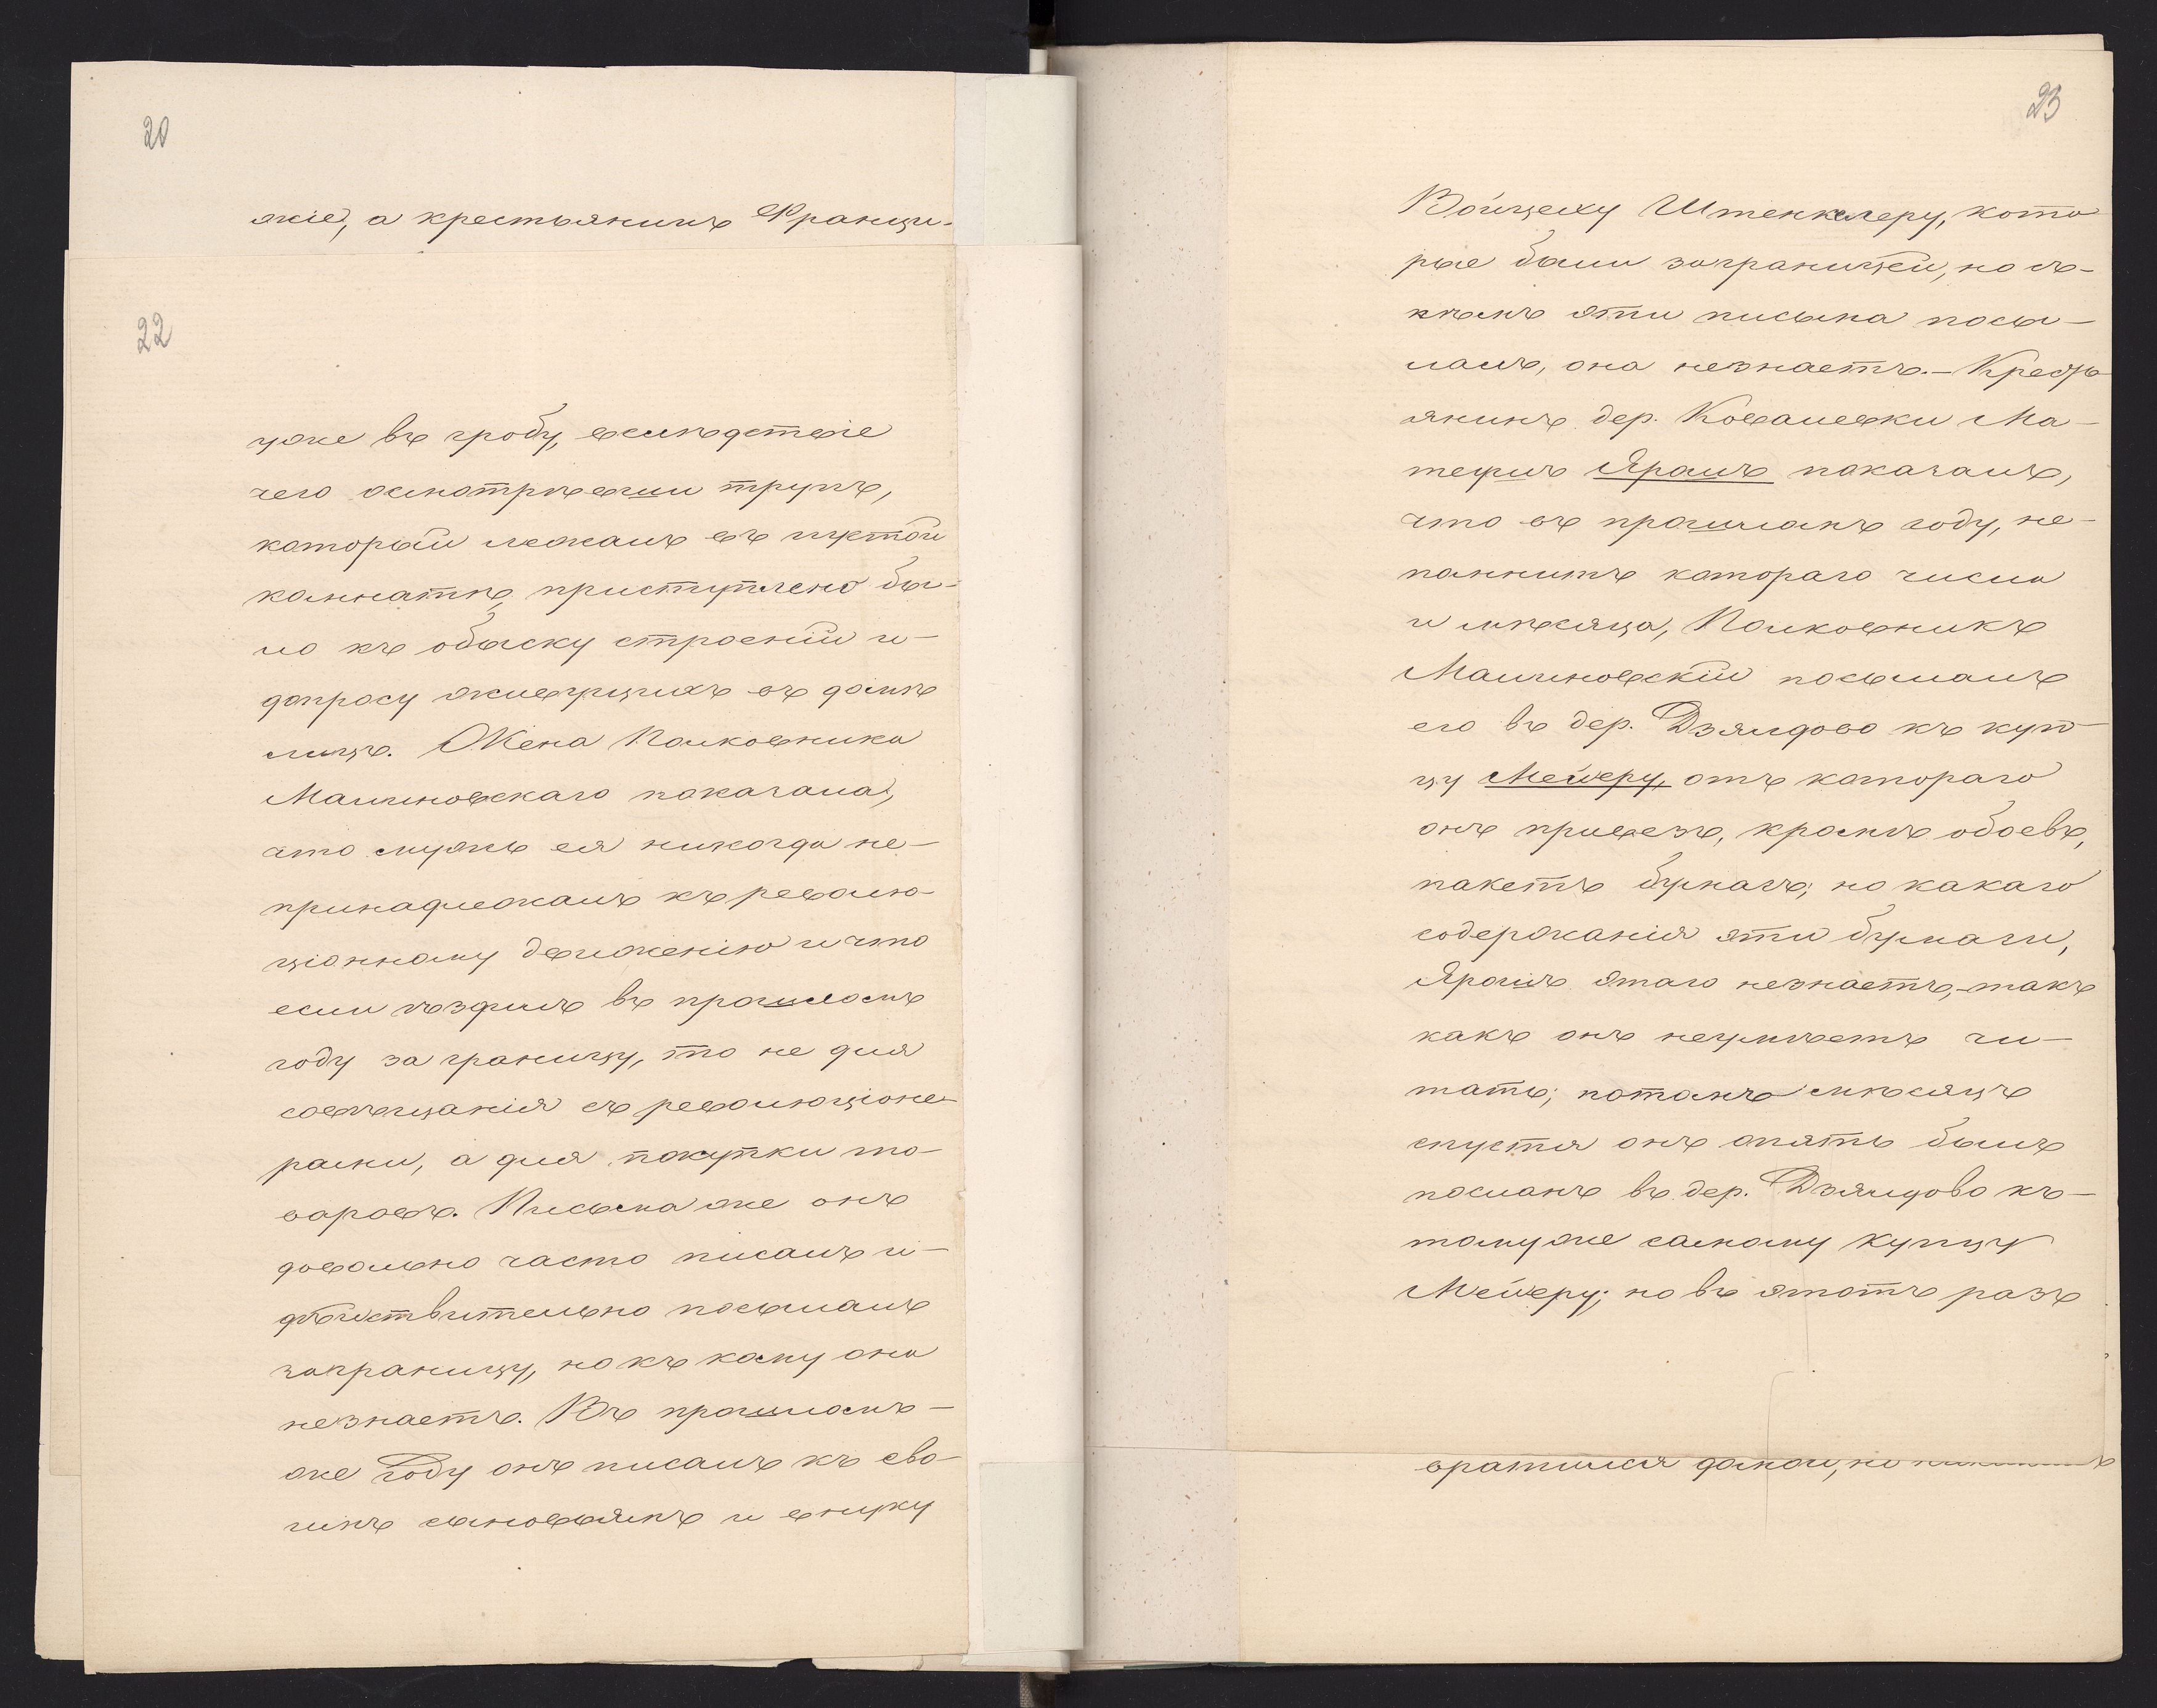 20
жіе, а крестьянинъ Франци-
22
уже въ гробу, вслѣдствіе
чего осмотрѣвши трупъ,
который лежалъ въ пустой
комнатѣ, приступлено бы-
ло къ обыску строеній и
допросу живущихъ въ домѣ
лицъ. Жена Полковника
Малиновскаго показала,
что мужъ ея никогда не-
принадлежалъ къ револю-
ціонному движенію и что
если ѣздилъ въ прошломъ
году за границу, то не для
совѣщанія съ революціоне-
рами, а для покупки то-
варовъ. Письма же онъ
довольно часто писалъ и
дѣйствительно посылалъ
заграницу, но къ кому она
незнаетъ. Въ прошломъ-
же году онъ писалъ къ сво-
имъ сыновьямъ и внуку
23
Войцеху Штенклеру, кото
рые были заграницей, но съ-
кѣмъ эти письма посы-
лалъ, она незнаетъ.- Кресть
янинъ дер. Ковалевки Ма-
теушъ Ярошъ показалъ,
что въ прошломъ году, не-
помнитъ котораго числа
и мѣсяца, Полковникъ
Малиновскій посылалъ
его въ дер. Дзялдово къ куп-
цу Мейеру, отъ котораго
онъ привезъ, кромѣ обоевъ,
пакетъ бумагъ; но какаго
содержанія эти бумаги,
Ярошъ этаго незнаетъ,-такъ
какъ онъ неумѣетъ чи-
тать; потомъ мѣсяцъ
спустя онъ опять былъ
посланъ въ дер. Дзялдово къ-
томуже самому купцу
Мейеру; но въ этотъ разъ
вратился домой, но